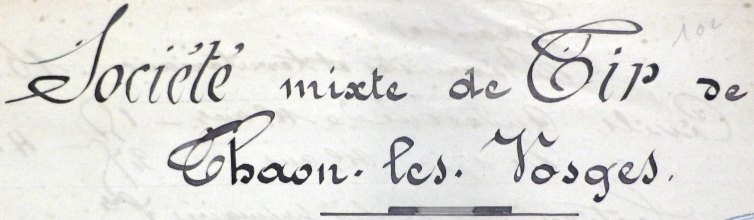 Société mixte de Tir de
Thaon. les. Vosges.
102